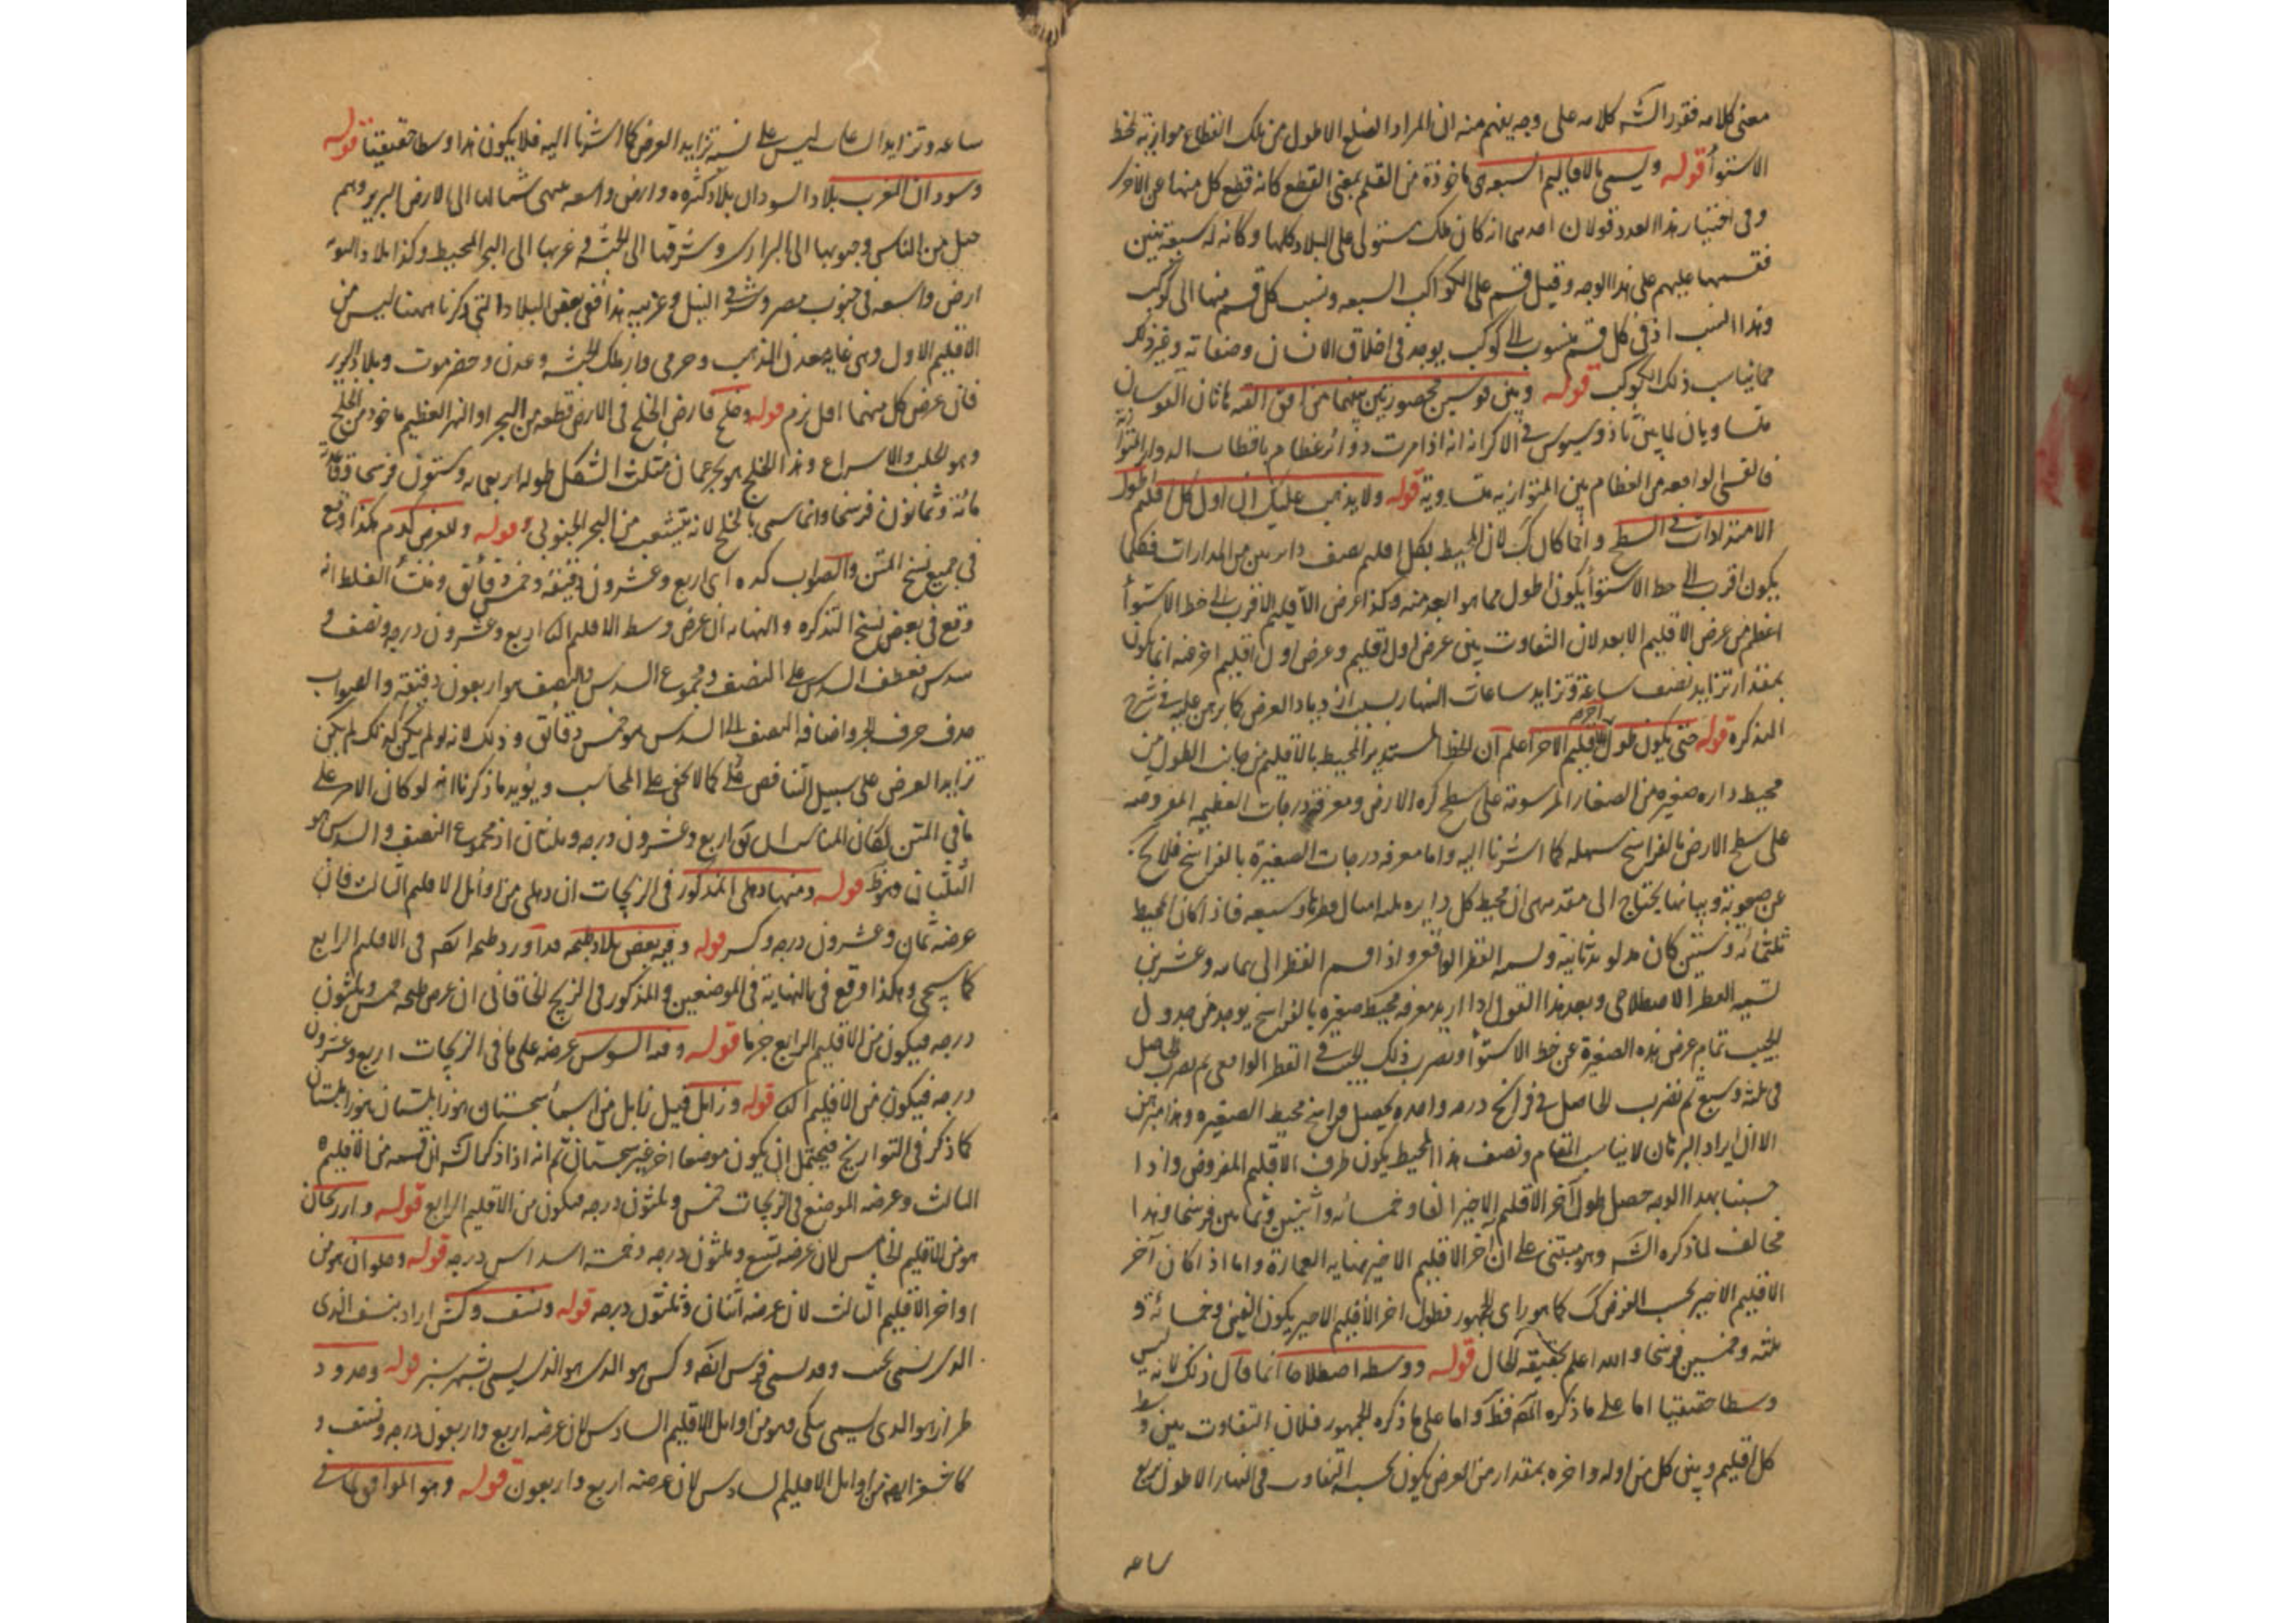 معنى كلامه فقرر الشه كلامه على وجه يفهم منه ان المراد الضلع الاطول من تلك القطاع موازية لخط
الاستوأ قوله ويسمى بالاقاليم السبعه ماخوذة من القلم بمعنى القطع كانه قطع كل منها عن الاخر
وفى اختيار هذا العدد قولان احدهما انه كان ملك مستولى على البلاد كلها وكانه له سبعة بنين
فقسمها عليهم على هذا الوجه وقيل قسم على الكواكب السبعه ونسب كل قسم منها الى كوكب
وهذا انسب اذ فى كل قسم منسوب الى كوكب يوجد فى اخلاق الانسان وصفاته وغير ذلك
مما يناسب ذلك الكوكب قوله وبين قوسين محصورتين بينهما من افق القبه هاتان القوسان
متساويان لما بين ثاذوسيوس فى الاكر انه اذا مرت دوائر عظام باقطاب الدوائر المتوازية
فالقسى الواقعه من العظام بين المتوازيه متساوية قوله ولا يذهب عليك ان اول كل اقليم اطول
الامتدادات فى السطح وانما كان كك لان المحيط بكل اقليم نصف دايرتين من المدارات فكلما
يكون اقرب الى خط الاستوأ يكون اطول مما هو ابعد منه وكذا عرض الاقليم الاقرب الى خط الاستوأ
اعظم من عرض الاقليم الابعد لان التفاوت بين عرض اول اقليم وعرض اول اقليم اخر منه انما يكون
بمقدار تزايد نصف ساعة وتزايد ساعات النهار بسبب ازدياد العرض كما برهن عليه فى شرح
التذكره قوله حتى يكون طول اقليم الاخر اعلم ان الخط المستدير المحيط بالاقليم من جانب الطول من
محيط داره صغيره من الصغار المرسومة على سطح كره الارض ومعرفة درجات العظيمه المفروضه
على سطح الارض بالفراسخ سهله كما اشرنا اليه واما معرفه درجات الصغيرة بالفراسخ فلا يخ
عن صعوبة وبيانها يحتاج الى مقدمه هى ان محيط كل دايره ثلثه امثال قطرها وسبعه فاذا كان المحيط
ثلثمائه وستين كان
تسميه القطر الاصطلاحى وبعد هذا القول اذا اريد معرفه محيط صغيره بالفراسخ يوجد من جدول
الجيب تمام عرض هذه الصغيرة عن خط الاستوأ ونضرب ذلك الجيب فى القطر الواقعى ثم نضرب الحاصل
فى ثلثه وسبع ثم نضرب الحاصل فى فراسخ درجه واحده يحصل فراسخ محيط الصغيره وهذا مبرهن
الا ان ايراد البرهان لا يناسب المقام ونصف هذا المحيط يكون طرف الاقليم المفروض واذا
حسبنا بهذا الوجه حصل طول آخر الاقليم الاخير الفا وخمسائه واثنين وثمانين فرسخا وهذا
مخالف لما ذكره الشه وهو مبتنى على ان آخر الاقليم الاخير نهايه العمارة واما اذا كان آخر
الاقليم الاخير بحسب العرض كك كما هو راى الجمهور فطول اخر الاقليم الاخير يكون الفين وخمسائة و
ثلثه وخمسين فرسخا والله اعلم بحقيقه الحال قوله ووسطه اصطلاحا انما قال ذلك لانه ليس
وسطا حقيقيا اما على ما ذكره المص فظ واما على ما ذكره الجمهور فلان التفاوت بين وسط
كل اقليم وبين كل من اوله واخره بمقدار من العرض يكون بحسبه التفاوت فى النهار الاطول ربع
ساعه
ساعه وتزايد الساعات ليس على نسبة تزايد العرض كما اشرنا اليه فلا يكون هذا وسطا حقيقيا قوله
وسودان المغرب بلاد السودان بلاد كثيره وارض واسعه ينتهى شمالها الى الارض البربر وهم
جيل من الناس وجنوبها الى البرارى وشرقها الى الحبشه وغربها الى البحر المحيط وكذا بلاد النوبه
ارض واسعه فى جنوب مصر وشرقى النيل وغربيه هذا فى بعض البلاد التى ذكرنا ههنا ليس من
الاقليم الاول وهى غانه معدن الذهب وجرمى دار ملك الحبشه وعدن وحضرموت وبلاد البربر
فان عرض كل منهما اقل من يزم قوله وخلج فارض الخلج فى الارض قطعه من البحر او النهر العظيم ماخوذ من الخلج
وهو الجلب والاسراع وهذا الخلج هو بحر عمان مثلث الشكل طوله اربعمايه وستون فرسخا وقاعدته
مائة وثمانون فرسخا وانما سمى بالخلج لانه يتشعب من البحر الجنوبى قوله والعرض كدم هكذا وقع
فى جميع نسخ المتن والصواب كده اى اربع وعشرون دقيقة وخمس دقائق ومنشأ الغلط انه
وقع فى بعض نسخ التذكره والنهايه ان عرض وسط الاقليم الثانى اربع وعشرون درجه ونصف و
سدس فعطف السدس على النصف ومجموع السدس والنصف هو اربعون دقيقة والصواب
حذف حرف الجر واضافه النصف الى السدس هو خمس دقائق وذلك لانه لو لم يكن كذلك لم يكن
تزايد العرض على سبيل التناقص على ما لا يخفى على المحاسب ويؤيد ما ذكرنا انه لو كان الامر على
ما فى المتن لكان المناسب ان يق اربع وعشرون درجه وثلثان اذ مجموع النصف والسدس هو
الثلثان وهو ظ قوله ومنها دهلى المذكور فى الزيجات ان دهلى من اوائل الاقليم الثالث فان
عرضه ثمان وعشرون درجه وكسر قوله وفيه بعض بلاد طنجه قد اورد طنجه المص فى الاقليم الرابع
كما سيجى وهكذا وقع فى النهاية فى الموضعين والمذكور فى الزيج الخاقانى ان عرض طنجه خمس وثلثون
درجه فيكون من الاقليم الرابع جزما قوله وفيه السوس عرضه على ما فى الزيجات اربع وعشرون
درجه فيكون من الاقليم الثانى قوله وزابل قيل زابل من اسمأ سجستان
كما ذكر فى التواريخ فيحتمل ان يكون موضعا اخر غير سجستان ثم انه اذا ذكر
الثالث وعرضه الموضع فى الزيجات خمس وثلثون درجه فيكون من الاقليم الرابع قوله واررنجان
هو من الاقليم الخامس لان عرضه تسع وثلثون درجه وخمسة اسداس درجه قوله وحلوان هو من
اواخر الاقليم الثالث لان عرضه اثنان وثلثون درجه قوله ونسف وكش اراد بنسف الذى
الذى يسمى نخشب وقد يسمى قرشى ايضا وكش هو الذى يسمى بشهر سبز قوله وحدود
طراز هو الذى يسمى ينكى وهو من اوائل الاقليم السادس لان عرضه اربع واربعون درجه ونصف و
كاشغر ايضا من اوائل الاقليم السادس لان عرضه اربع واربعون قوله وهو الموافق لما فى